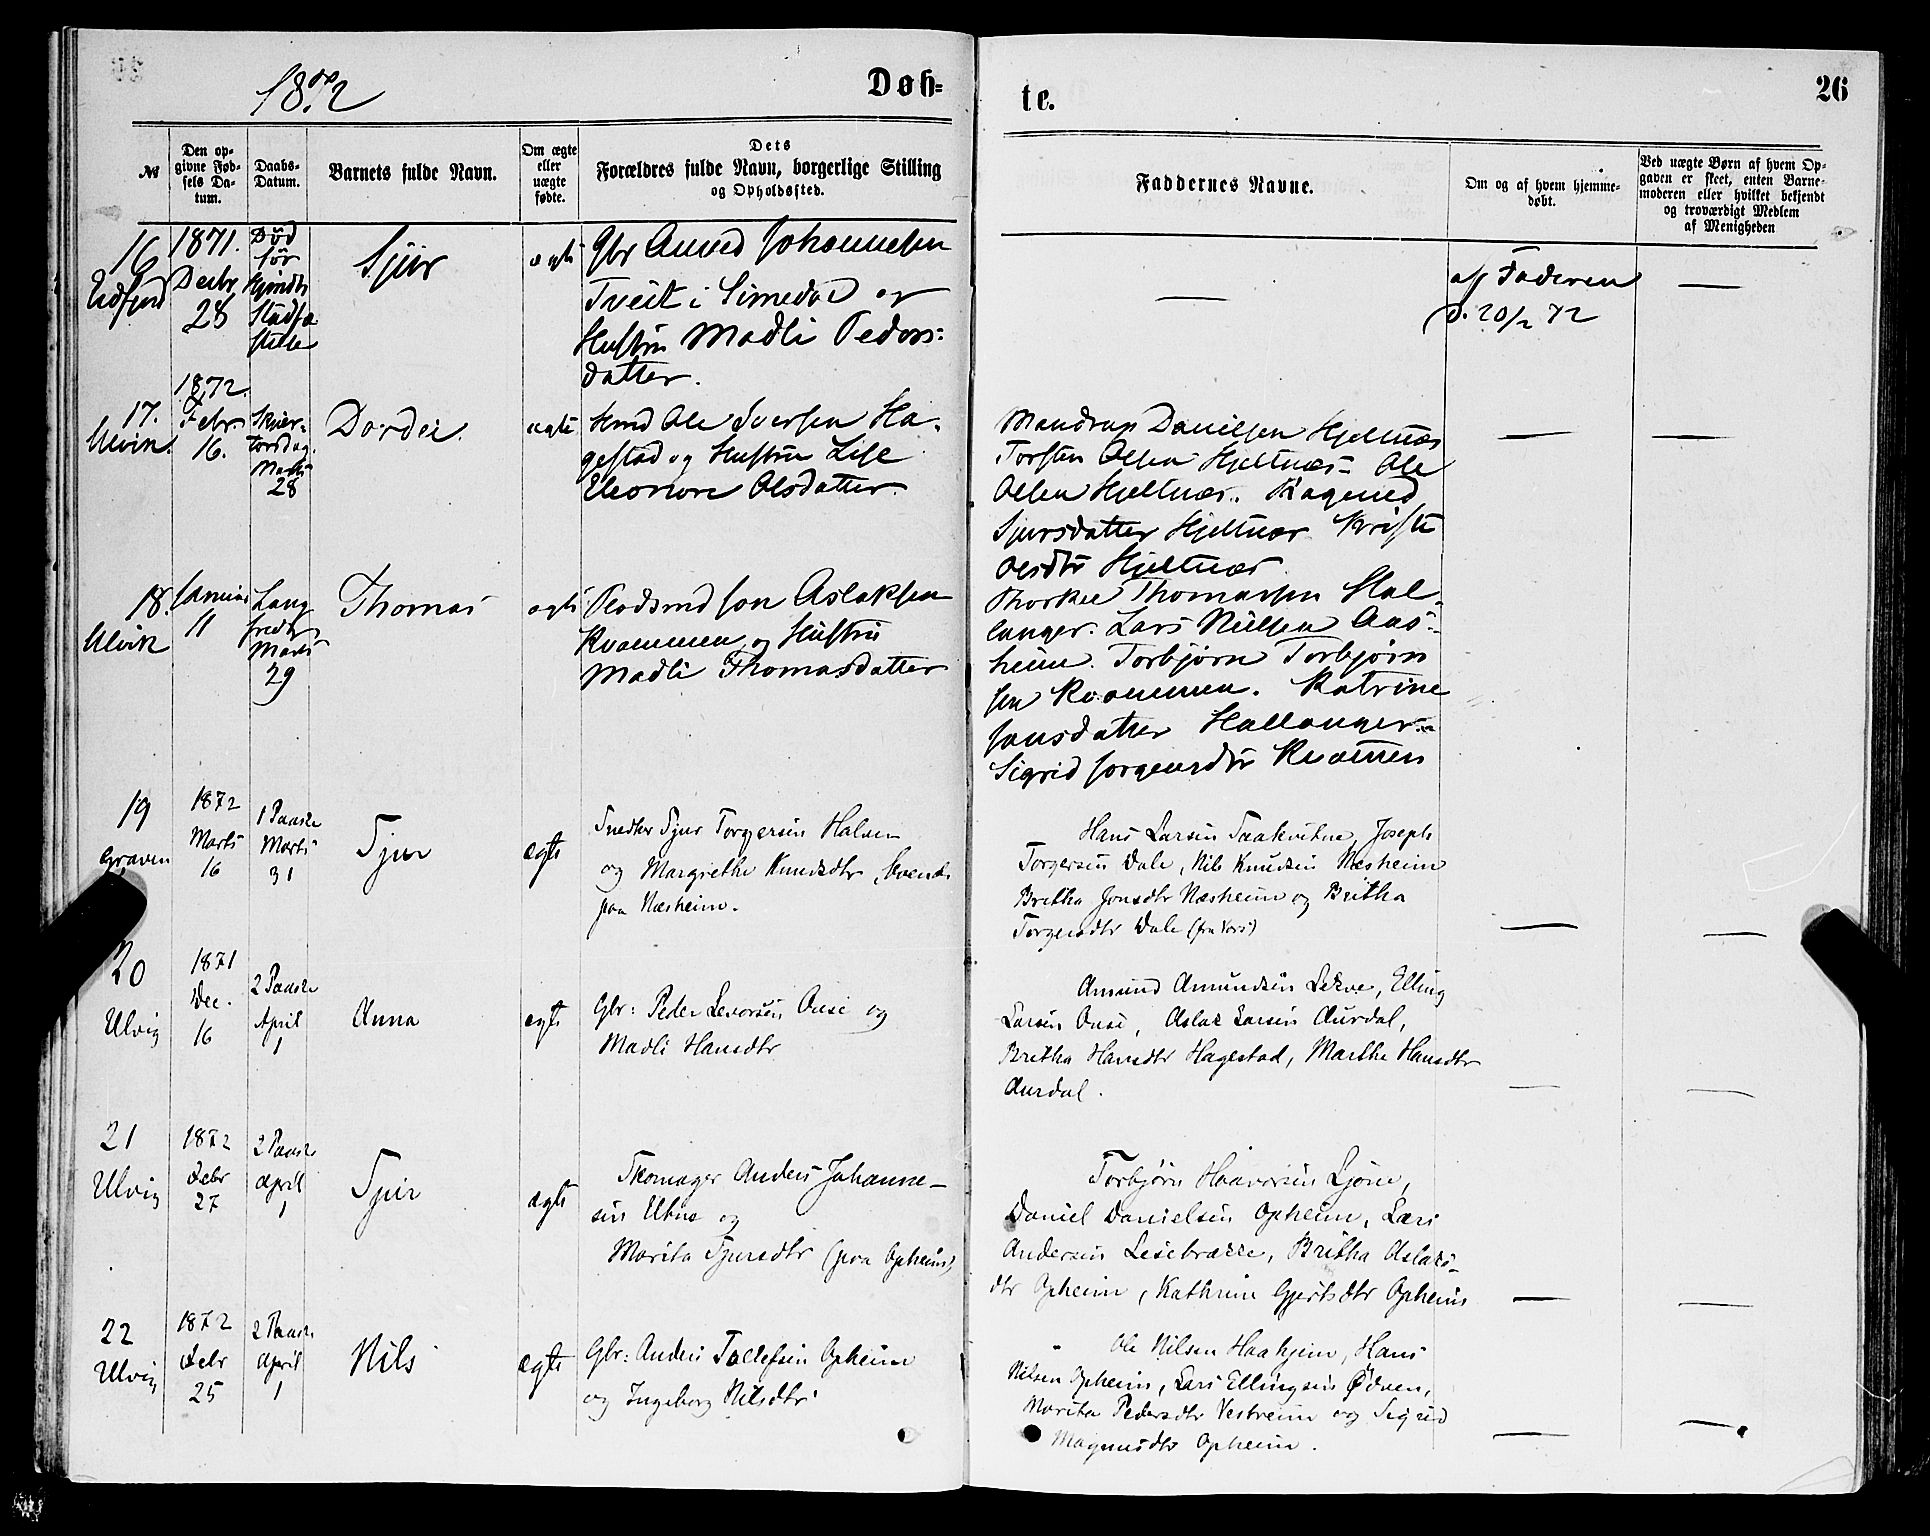 1872
Døb=
te.
26
№
Den op-
givne Fød-
sels Da-
tum.
Daabs-
Datum.
Barnets fulde Navn.
Om ægte
eller
uægte
fødte.
Dets
Forældres fulde Navn, borgerlige Stilling
og Opholdssted.
Faddernes Navne.
Om og af hvem hjemme-
døbt.
Ved uægte Børn af hvem Op-
gaven er skeet, enten Barne-
moderen eller hvilket bekjendt
og troværdigt Medlem
af Menigheden
16
Eidfjord
1871.
Decbr
28
Død
før
Hjemdbs
Stadfæ
stelse
Sjur
ægte
Gbr Amund Johannesen
Tveit i Simedal og
Hustru Madli Peders=
datter.
—
af Faderen
d. 20/2 72
—
17.
Ulvik.
1872.
Febr.
16.
Skjær-
torsdag.
Marts
28
Dordei.
ægte
Hmd Ole Iversen Ha-
gestad og Hustru Lise
Eleonore Olsdatter.
Mandrup Danielsen Hjeltnæs
Torsten Olsen Hjeltnæs- Ole
Olsen Hjeltnæs. Ragnild
Sjursdatter Hjeltnæs Kristi
Olsdtr Hjeltnæs
—
—
18.
Ulvik
Januar
11
Lang
fredag
Marts
29
Thomas
ægte
Pladsmd Jon Aslaksen
Kvammen og Hustru
Madli Thomasdatter
Thorkel Thomassen Hal-
langer. Lars Nielsen Aas-
heim. Torbjørn Torbjørn
sen Kvammen. Katrine
Jonsdatter Hallanger-
Sigrid Jorgensdtr Kvammen
19
Graven
1872
Marts
16
1 Paaske
Marts
31
Sjur
ægte
Snedker Sjur Torgersen Halven
og Margrethe Knudsdtr,
paa Næsheim.
Hans Larsen Saakvitne, Joseph
Torgersen Dale, Nils Knudsen Næsheim
Britha Jonsdtr Næsheim og Britha
Torgersdtr Dale (fra Vors)
—
—
20
Ulvig
1871
Dec.
16
2 Paaske
April
1
Anna
ægte
Gbr: Peder Levorsen Onse og
Madli Hansdtr
Amund Amundsen Lekve, Elling
Larsen Onse, Aslak Larsen Aurdal,
Britha Hansdtr Hagestad, Marthe Hansdtr
Aurdal.
—
—
21
Ulvig
1872
Febr
27
2 Paaske
April
1
Sjur
ægte
Skomager Anders Johanne-
sen Utne og
Marita Sjursdtr (paa Opheim)
Torbjørn Haavorsen Ljone,
Daniel Danielsen Opheim, Lars
Andersen Leisebrække, Britha Aslaks-
dtr Opheim, Kathrine Gjertsdtr Opheim
—
—
22
Ulvig
1872
Febr
25
2 Paaske
April
1
Nils
ægte
Gbr: Anders Tollefsen Opheim
og Ingeborg Nilsdtr
Ole Nilsen Haaheim, Hans
Nilsen Opheim, Lars Ellingsen Ødven,
Marita Pedersdtr Vestreim og Sigrid
Magnusdtr Opheim.
—
—